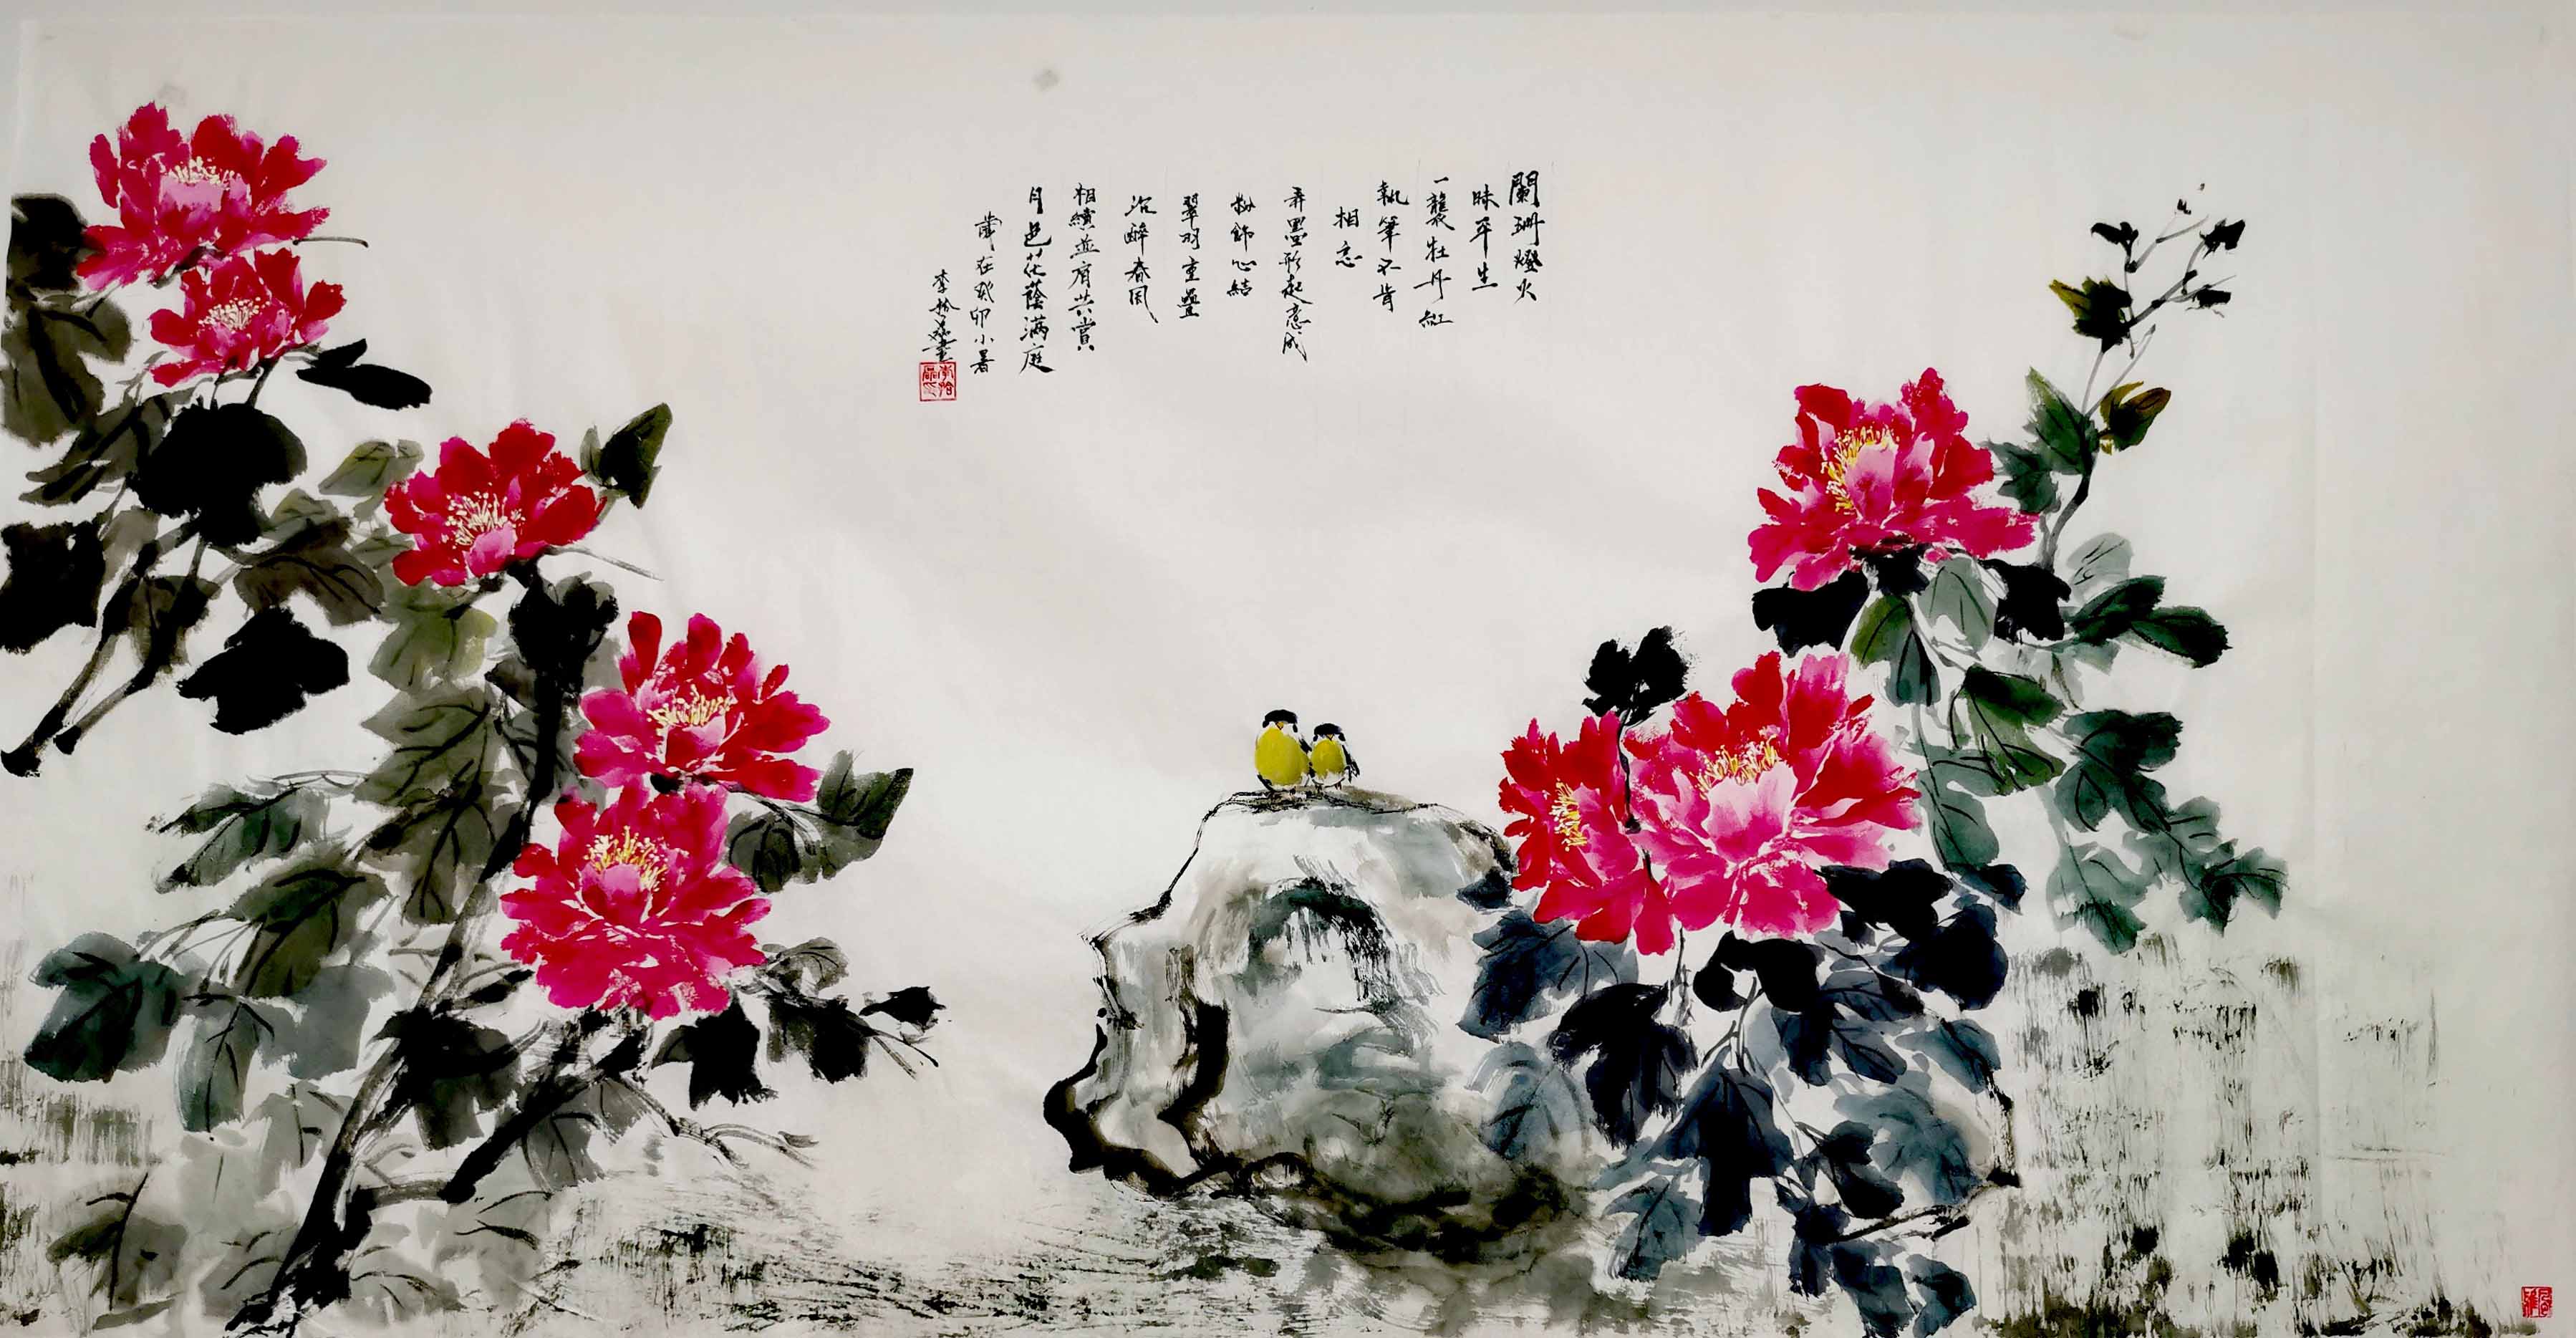 闌珊燈火
昧平生
一襲牡丹紅
執筆不肯
相忘
弄墨形起意成
粉飾心結
翠羽重疊
沉醉春风
相續並肩共賞
月色花蔭满庭
歲在癸卯小暑
李